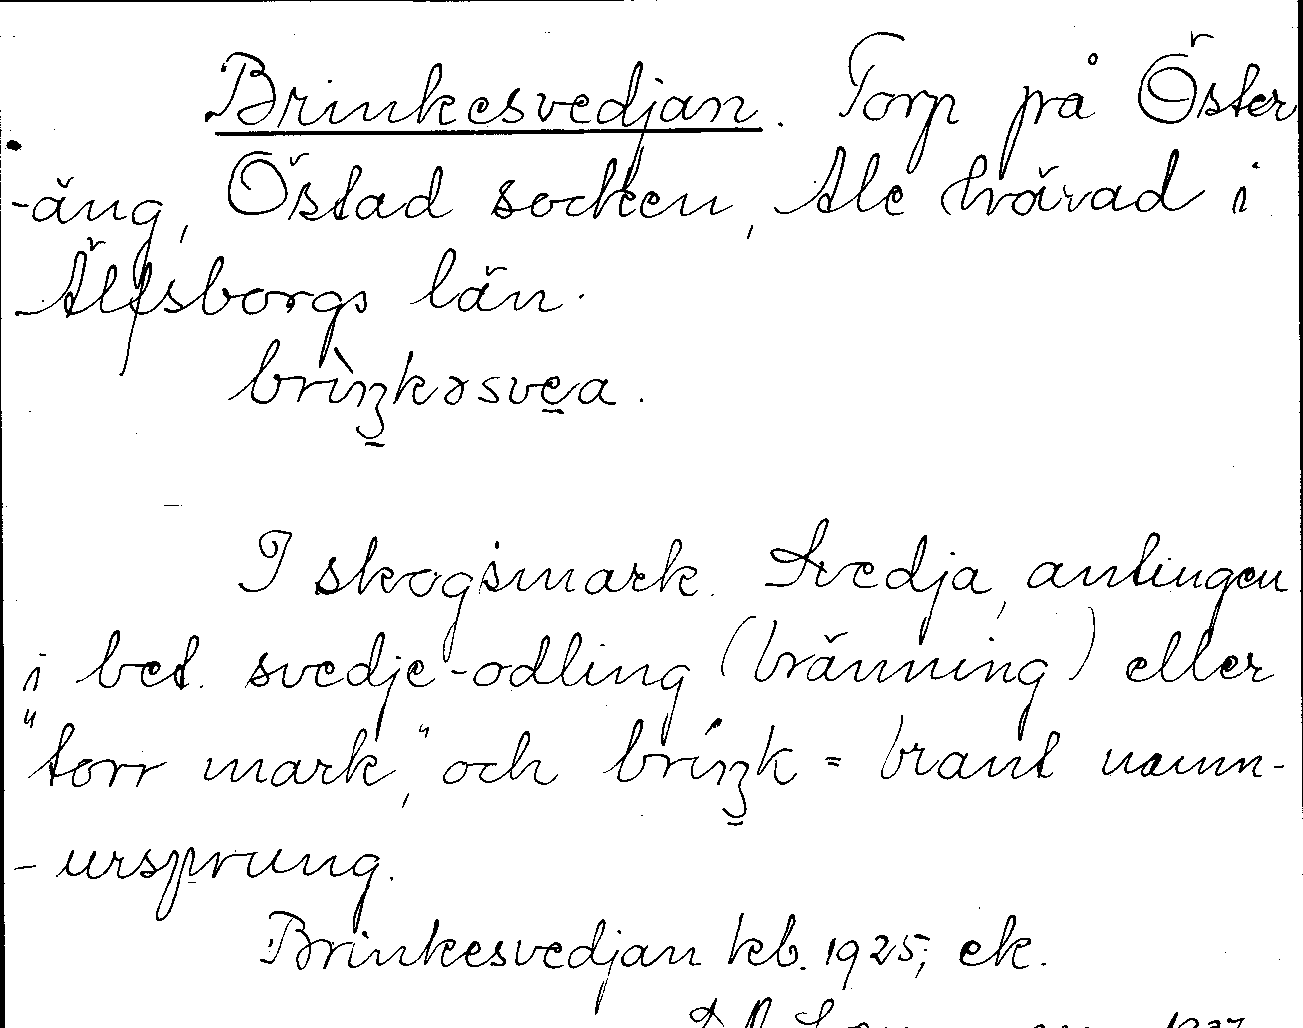 Brinkesvedjan. Torp på Öster
-äng, Östad socken, Ale härad i
Älfsborgs län.
brìŋkəsvea.
I skogsmark. Svedja, antingen
i bet. svedje-odling (bränning) eller
"torr mark," och bríŋk = brant namn-
-ursprung.
Brinkesvedjan kb. 1925; ek.
1937